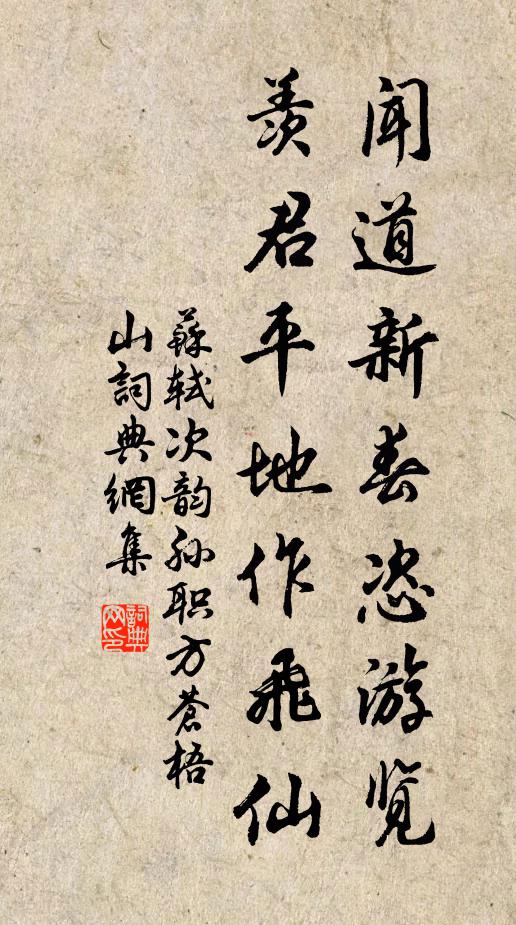 闻道新春恣游览
羡君平地作飞仙
蘇轼次韵孙职方蒼梧
山詞典網集
詞典
网印